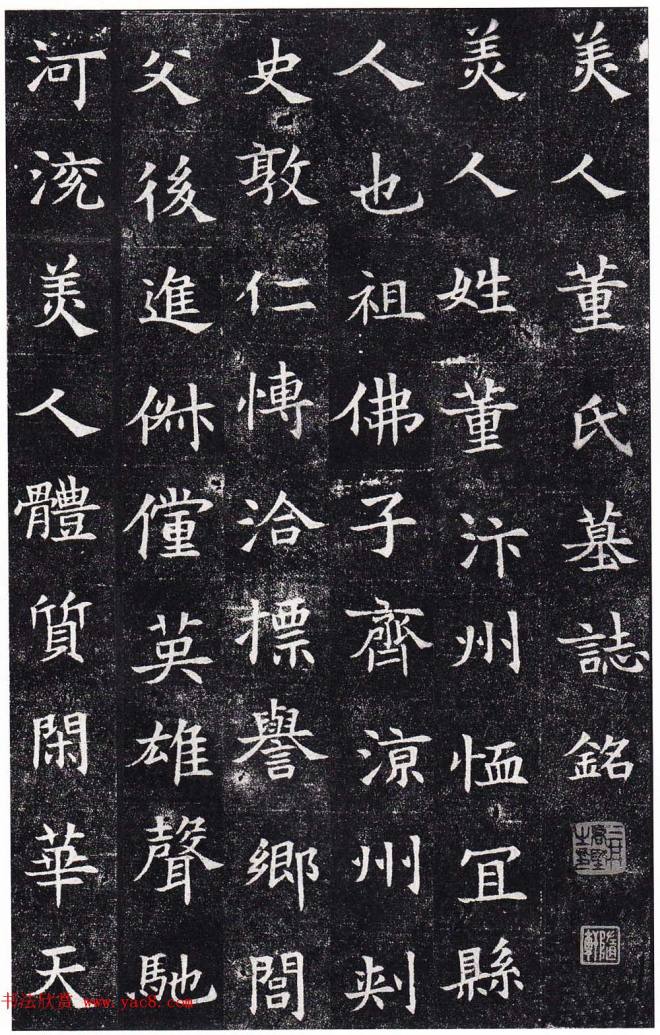 美人董氏墓誌銘
美人姓董汴州恤宜縣
人也祖佛子齊涼州刺
史敦仁愽洽摽譽鄉閭
父後進俶儻英雄聲馳
河流美人體質閑華天
书法欣赏 www.yac8.com